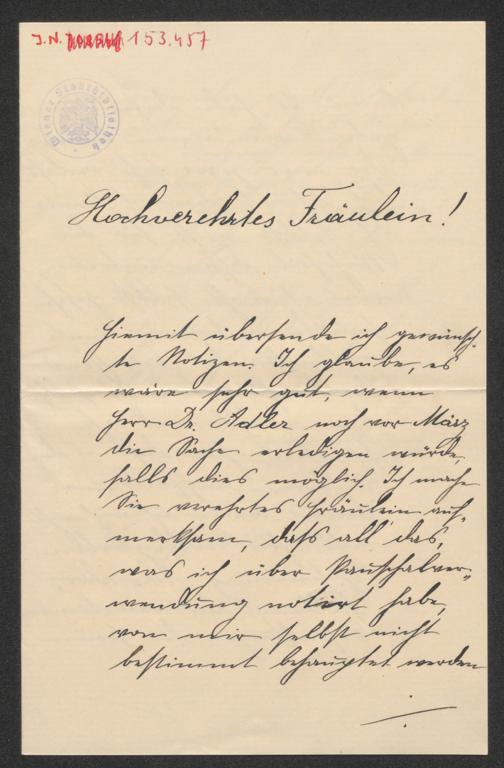 J.N. 153.457
Wiener Stadtbibliothek
Hochverehrtes Fräulein!
Hiemit übersende ich gewünsch-
te Notizen. Ich glaube, es
wäre sehr gut, wenn
Herr Dr. Adler noch vor März
die Sache erledigen würde,
falls dies möglich. Ich mache
Sie verehrtes Fräulein auf-
merksam, dass all' das,
was ich über Pauschalver-
wendung notirt habe,
von mir selbst nicht
bestimmt behauptet werden